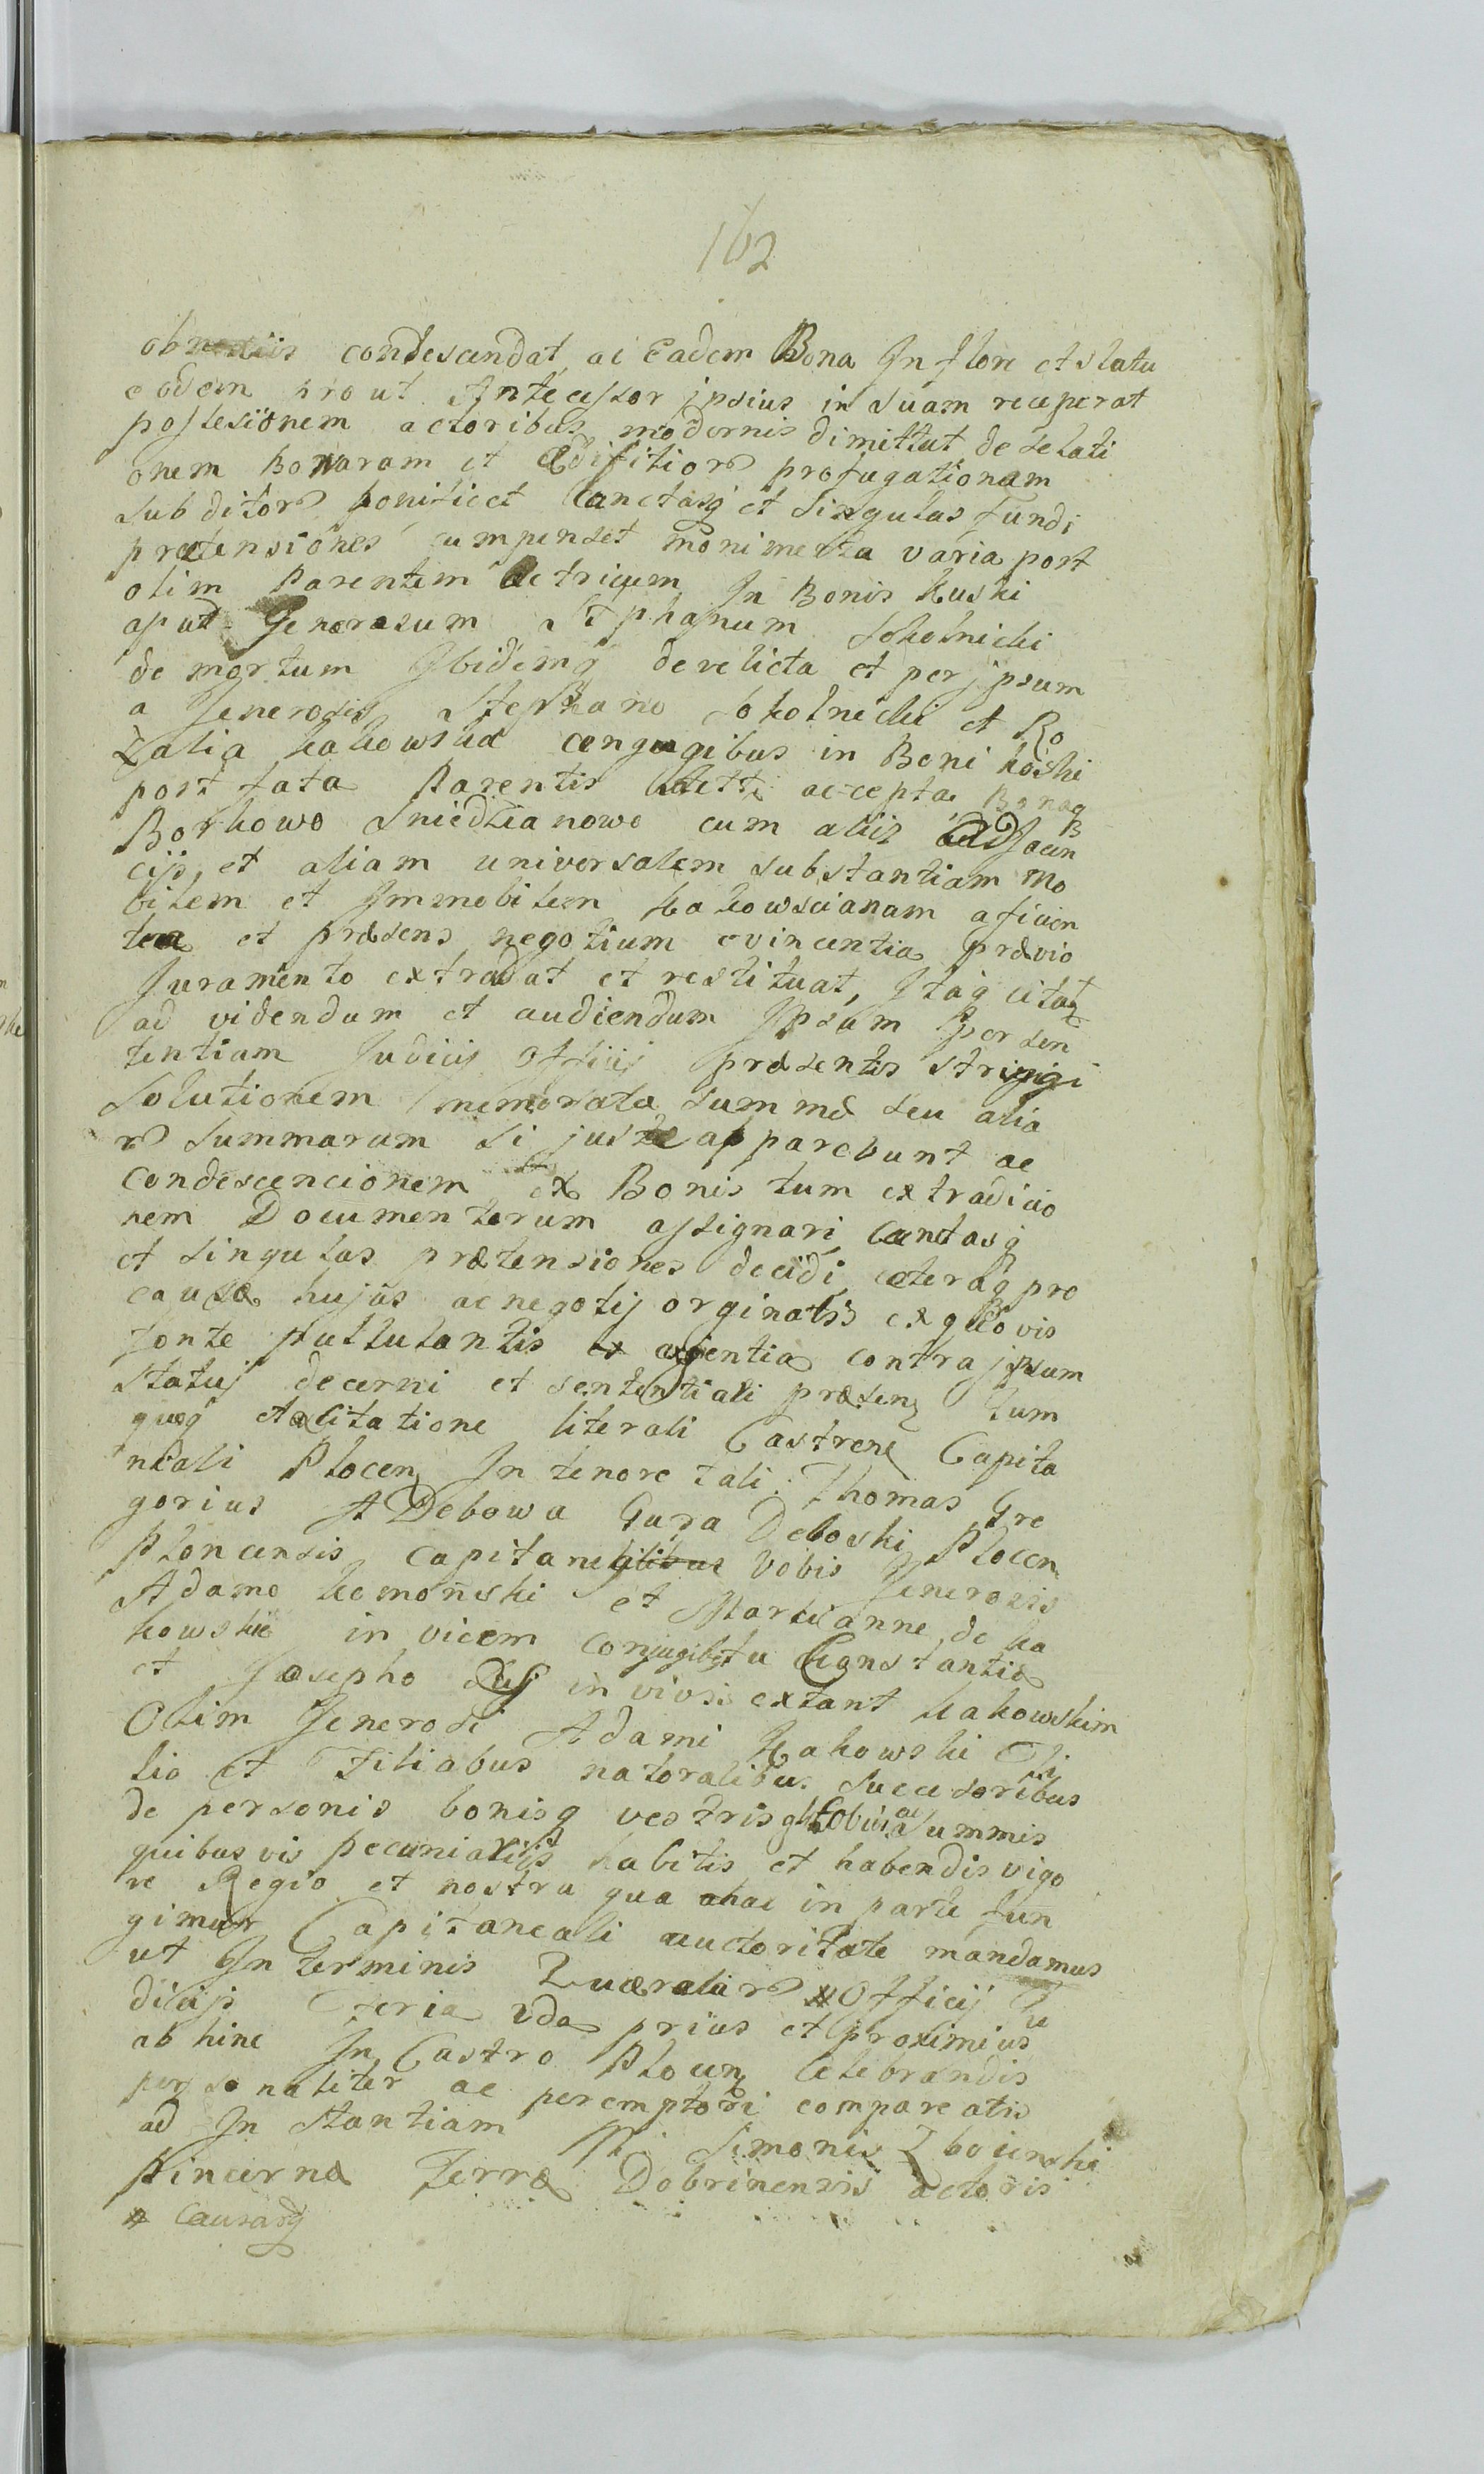 162
condescendat, ac Eadem Bona In flore et statu
eodem prout Antecessor ipsius in suam receperat
possesionem actoribus modernis dimittat desolati
onem Bonorum et Ædifitior profugationem
subditor bonificet Cunctasq et Singulas Fundi
prætensiones cumpenset monimenta varia post
olim Parentem Actricum In Bonis Kuski
aput Generosum Stephanum Sokolnicki
de mortum Ibidemq derelicta et per jpsum
a Generosis Stephano Sokolnicki et Ro
zalia Kakowska congugibus in Boni Koski
post fata Parentis accepta Bonaq
Borkowo Sniedzianowo cum aliis Adjacen
cijs, et aliam universalem substantiam Mo
bilem et Immobilem Kakowscianam aficien
tea et præsens negotium evincentia prævio
Juramento extradat et restituat, Itaq citat
ad videndum et audiendum Ipsum per sen
tentiam Judicij Officij præsentis stringi
Solutionem memorata summæ seu alia
r summarum si juste apparebunt ac
condescencionem ex Bonis tum extradicio
nem Documentorum assignari Cunctasq
et singulas prætensiones decidi cæteraq pro
causa hujus ac negotij orginatis ex quovis
fonte pullulantis et agentia contra jpsum
statuj decerni et sententiali præsen tum
quoq citatione literali Castren Capita
neali Plocen In tenore tali: Thomas Gre
gorius A Debowa Gura Deboski Plocen
Ploncensis Capitane Vobis Generosis
Adamo Komoński et Marcianne de Ka
kowskie in vicem Conjugib tu Constantia
et Josepho in vivis extant Kakowskim
Olim Generosi Adami Kakowski Fi
lio et Filiabus natoralibu Succesoribus
de personis bonisq vestris Summis
quibusvis pecuniariis habitis et habendis vigo
re Regio et nostra qua ahac in parte fun
gimur Capitaneali auctoritate mandamus
ut In terminis Quærelar # Officij Ju
dicij Feria 2da prius et proximius
ab hinc In Castro Plocen Celebrandis
personaliter ac peremptori compareatis
ad In Stantiam M: Simonis Zboienski
Pincernæ Terræ Dobrinensis actoris
# Causarq